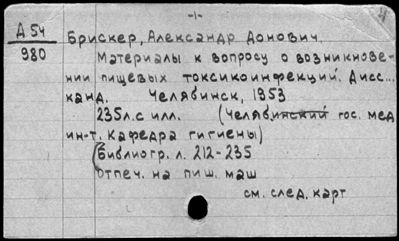 -1-
Д 54
980
Брискер, Александр Донович.
Материалы к вопросу о возникнове-
нии пищевых токсикоинфекций. Дисс...
канд. Челябинск, 1953
235л. с илл. (Челябинский гос. мед
ин-т. Кафедра гигиены)
(Библиогр. л. 212-235
отпеч. на пиш. маш
см. след. карт